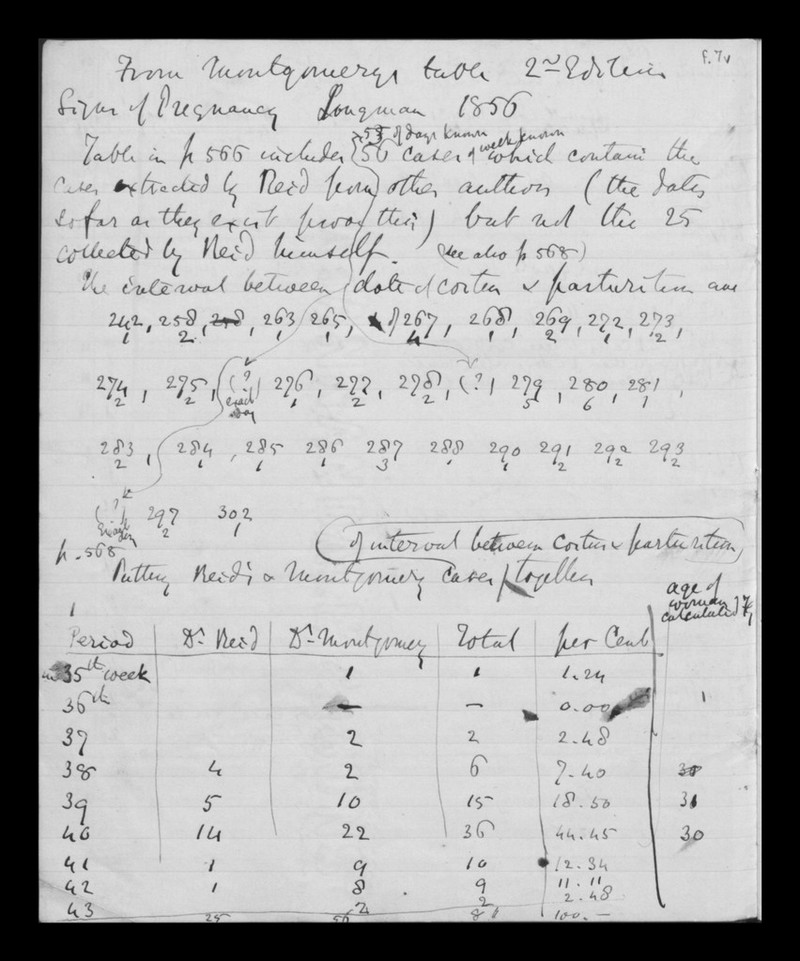 f.7v
From Montgomerys table 2nd Edition
Signs of Pregnancy Longman 1856
53 of days known
week known
Table in p 566 includes 56 cases of which contain the
cases extracted by Reid from other authors (the dates
so far as they exist prove this) but not the 25
collected by Reid himself. (see also p 568)
The interval between date of coitus & parturition are
242, 258, 263 265, 267, 268, 269, 272, 273,
1 2 1 1 4 1 2 1 2
274, 275, (? exact day) 276, 277, 278, (?) 279, 280, 281,
2 2 1 2 2 5 6 1
283, 284, 285 286 287 288 290 291 292 293
2 1 1 1 3 1 1 2 2 2
(? day) 297 302
2 1
p. 568
of interval between coitus & parturition
Putting Reid's & Montgomery cases together
age of woman calculated
Period Dr Reid Dr Montgomery Total per Cent
in 35th week 1 1 1.24
36th — — 0.00 1
37 2 2 2.48
38 4 2 6 7.40 30
39 5 10 15 18.50 31
40 14 22 36 44.45 30
41 1 9 10 12.34
42 1 8 9 11.11
43 2 2 2.48
25 56 81 100.—